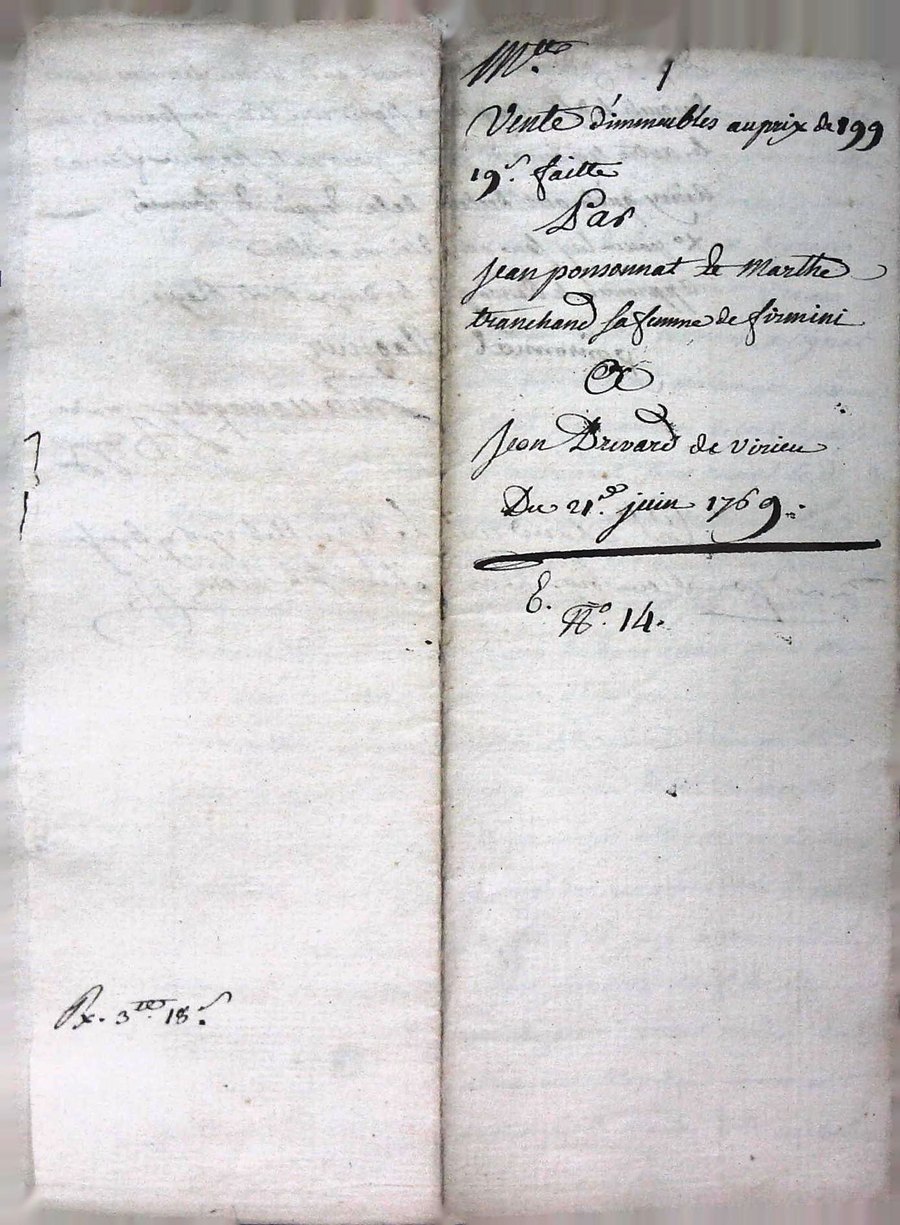 Vente d'immeubles au prix de 199
19s. faitte
Par
Jean ponsonnat & Marthe
tranchand sa femme de firmini
A
Jean Drevard de virieu
Du 21e. juin 1769.
E.
No. 14.
Px. 3tt. 18s.